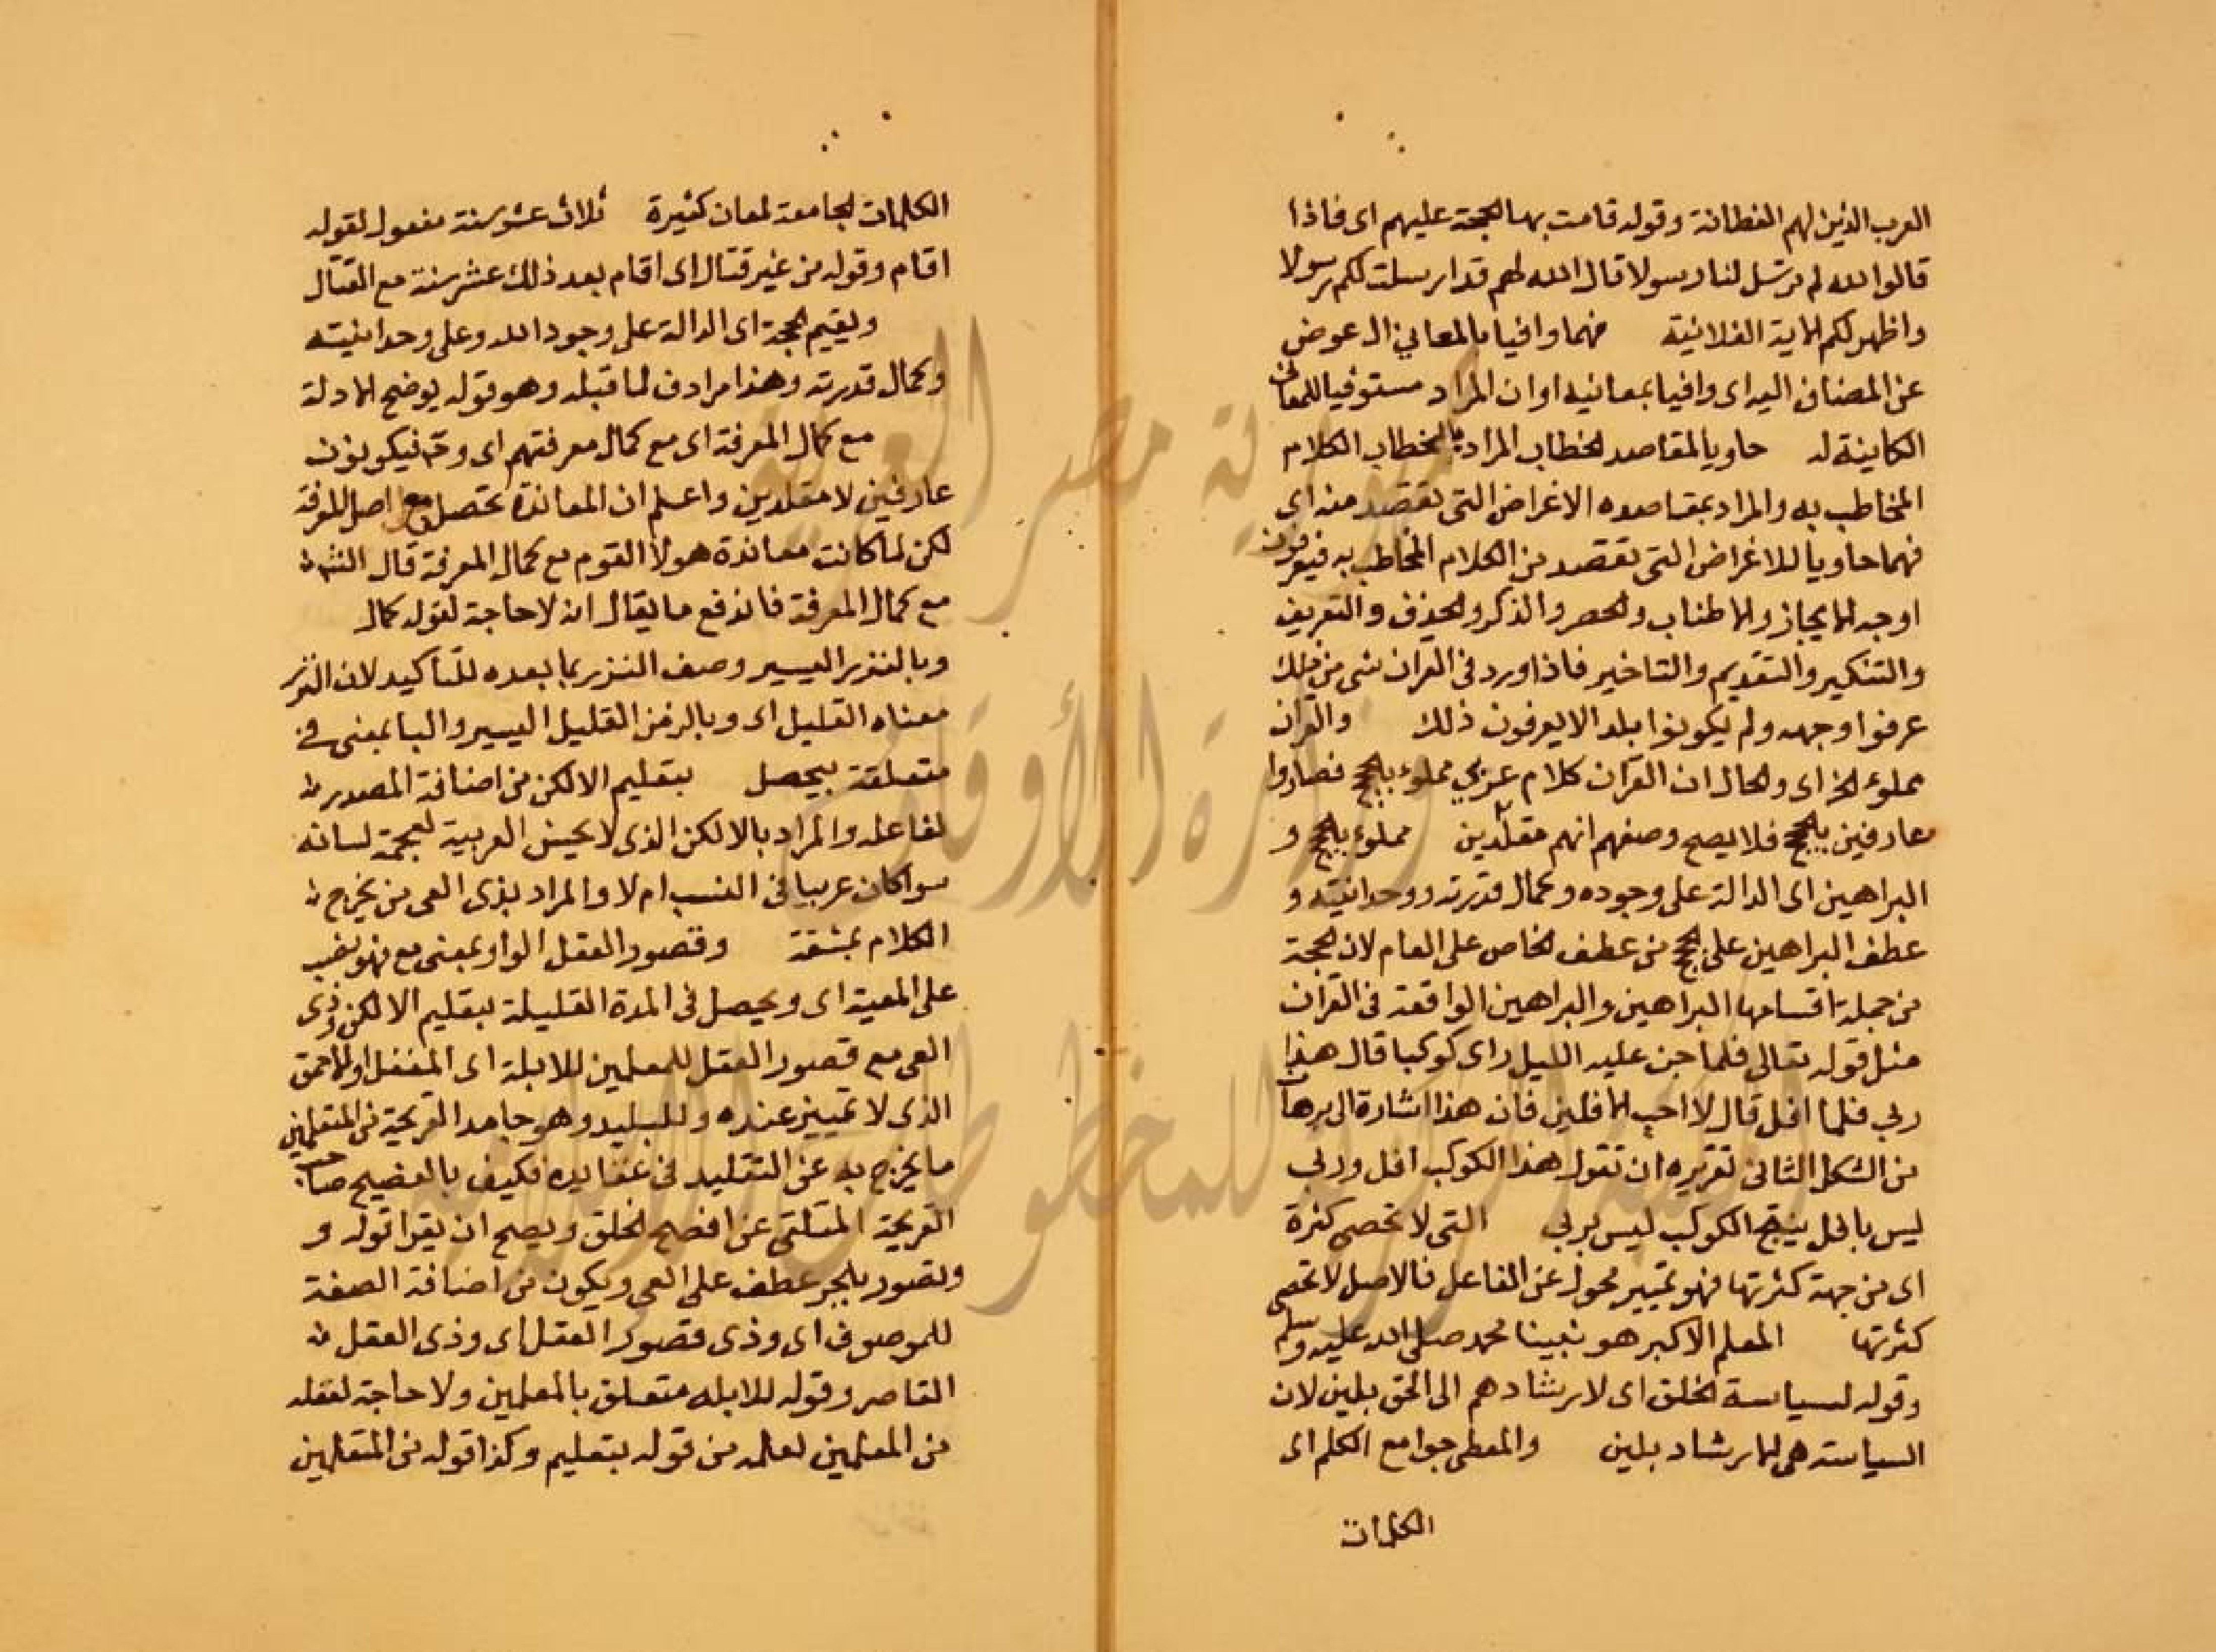 العرب الذين لهم الفطانة وقوله قامت بها الحجة عليهم اى فاذا
قالوا لله لم ترسل لنا رسولا قال الله لهم قد ارسلت لكم رسولا
واظهر لكم الاية الفلانية فهما وافيا بالمعاني ال عوض
عن المضاف اليه اى وافيا بمعانيه او ان المراد مستوفيا للمعانى
الكاينة له حاويا لمقاصد الخطاب المراد بالخطاب الكلام
المخاطب به والمراد بمقاصده الاغراض التى تقصد منه اى
فهما حاويا للاغراض التى تقصد من الكلام المخاطب به فيعرفون
اوجه الايجاز والاطناب والحصر والذكر والحذف والتعريف
والتنكير والتقديم والتاخير فاذا ورد فى القران شى من ذلك
عرفوا وجهه ولم يكونوا بلدا لا يعرفون ذلك والقران
مملوء الخ اى والحال ان القرآن كلام عربي مملوء بالحجج فصاروا
عارفين بالحجج فلا يصح وصفهم انهم مقلدين مملوء بالحجج و
البراهين اى الدالة على وجوده وكمال قدرته ووحدانيته و
عطف البراهين على الحجج من عطف الخاص على العام لان الحجة
من جملة اقسامها البراهين والبراهين الواقعة فى القران
مثل قوله تعالى فلما جن عليه الليل راى كوكبا قال هذا
ربي فلما افل قال لا احب الافلين فان هذا اشارة الى برهان
من الشكل الثانى تقريره ان تقول هذا الكوكب افل وربي
ليس بافل ينتج الكوكب ليس بربي التى لا تحصى كثرة
اى من جهة كثرتها فهو تمييز محول عن الفاعل فالاصل لا تحصى
كثرتها المعلم الاكبر هو نبينا محمد صلى الله عليه وسلم
وقوله لسياسة الخلق اى لارشادهم الى الحق بلين لان
السياسة هى الارشاد بلين والمعطى جوامع الكلم اى
الكلمات
الكلمات الجامعة لمعان كثيرة ثلاث عشر سنة مفعول لقوله
اقام وقوله من غير قتال اى اقام بعد ذلك عشر سنة مع القتال
ويقيم الحجة اى الدالة على وجود الله وعلى وحدانيته
وكمال قدرته وهذا مرادف لما قبله وهو قوله يوضح الادلة
مع كمال المعرفة اى مع كمال معرفتهم اى وح فيكونون
عارفين لا مقلدين واعلم ان المعاندة تحصل مع اصل المعرفة
لكن لما كانت معاندة هولا القوم مع كمال المعرفة قال الش
مع كمال المعرفة فاندفع ما يقال انه لا حاجة لقوله كمال
وبالنزر اليسير وصف النزر بما بعده للتأكيد لان النزر
معناه القليل اى وبالزمن القليل اليسير والبا بمعنى فى
متعلقة بيحصل بتعليم الالكن من اضافة المصدر
لفاعله والمراد بالالكن الذى لا يحسن العربية لعجمة لسانه
سوا كان عربيا فى النسب ام لا والمراد بذى العى من يخرج
الكلام بمشقة وقصور العقل الواو بمعنى مع فهو نصب
على المعية اى ويحصل فى المدة القليلة بتعليم الالكن وذى
العى مع قصور العقل للمعلمين للابلة اى المغفل او الاحمق
الذى لا تمييز عنده وللبليد وهو جامد القريحة من المتعلمين
ما يخرج به عن التقليد فى عقايده فكيف بالفصيح صاحب
القريحة المتلقى عن افصح الخلق ويصح ان يقرا قوله و
وقصور بالجر عطف على العى ويكون من اضافة الصفة
للموصوف اى وذى قصور العقل اى وذى العقل
القاصر وقوله للابله متعلق بالمعلمين ولا حاجة لنقله
من المعلمين لعلمه من قوله بتعليم وكذا قوله من المتعلمين